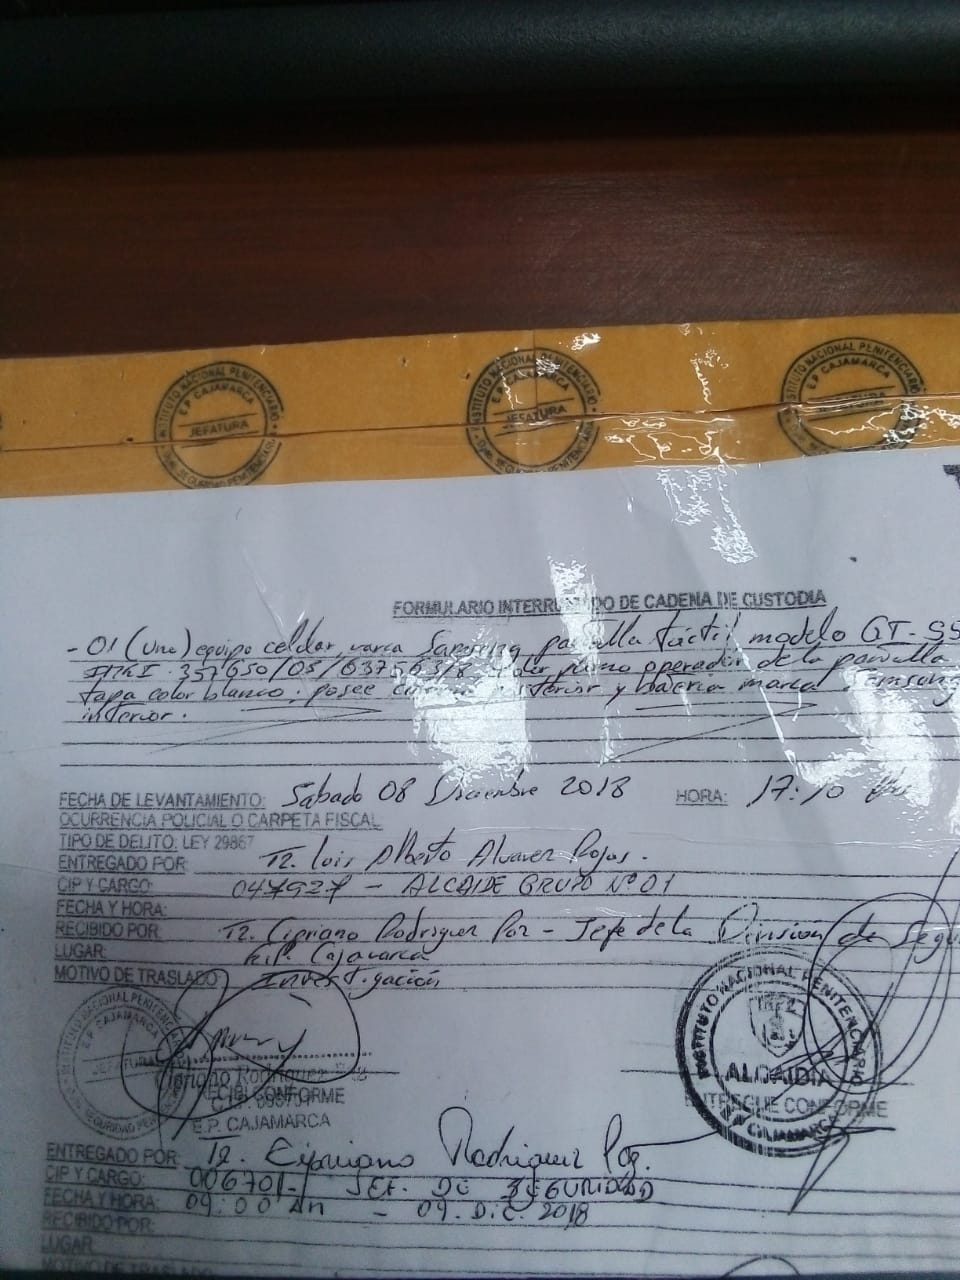 INSTITUTO NACIONAL PENITENCIARIO
E.P. CAJAMARCA
JEFATURA
INSTITUTO NACIONAL PENITENCIARIO
E.P. CAJAMARCA
JEFATURA
INSTITUTO NACIONAL PENITENCIARIO
E.P. CAJAMARCA
FORMULARIO DE CADENA DE CUSTODIA
- 01 (Uno) equipo celular, marca Samsung pantalla táctil, modelo GT-S5
IMEI: 357650/05/ color plomo operador de la pantalla
tapa color blanco, posee interior y bateria marca Samsung
interior.
FECHA DE LEVANTAMIENTO: Sábado 08 Diciembre 2018 HORA: 17:10
OCURRENCIA POLICIAL O CARPETA FISCAL
TIPO DE DELITO: LEY 29867
ENTREGADO POR: T2. Luis Alberto Alvarez Rojas.
CIP Y CARGO: 047927 - ALCAIDE GRUPO Nº 01
FECHA Y HORA:
RECIBIDO POR: T2. Cipriano Rodriguez Paz - Jefe de la División de Segu
LUGAR: E.P. Cajamarca
MOTIVO DE TRASLADO Investigación
INSTITUTO NACIONAL PENITENCIARIO
E.P. CAJAMARCA
JEFATURA
Cipriano Rodriguez Paz
RECIBI CONFORME
E.P. CAJAMARCA
INSTITUTO NACIONAL PENITENCIARIO
ALCAIDIA
E.P CAJAMARCA
ENTREGUE CONFORME
ENTREGADO POR: T2. Cipriano Rodriguez Paz.
CIP Y CARGO: 006701- JEF. DE SEGURIDAD
FECHA Y HORA: 09:00 AM - 09. DIC. 2018
RECIBIDO POR:
LUGAR:
MOTIVO DE TRASLADO